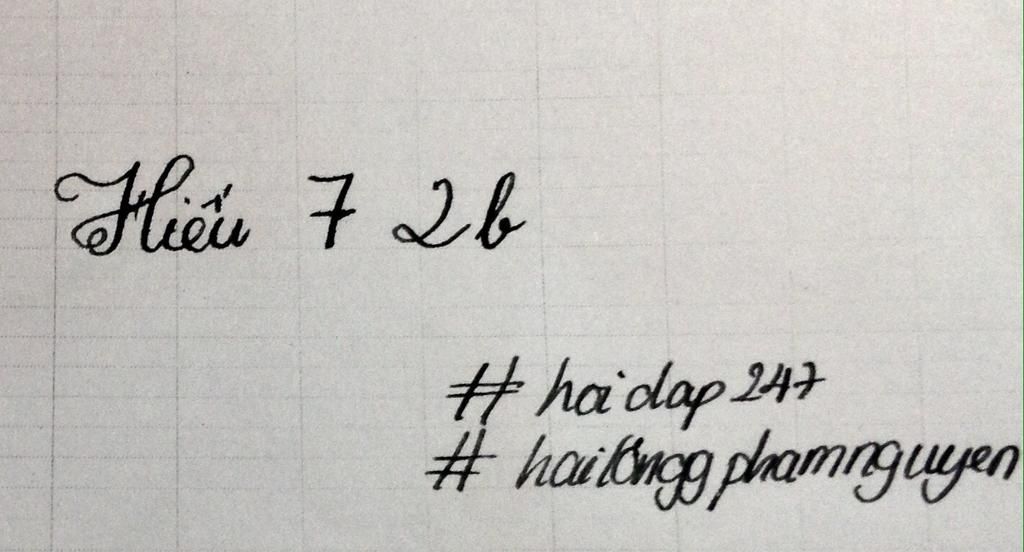 Hiếu 7 2b
# hoidap247
# hailongg phamnguyen